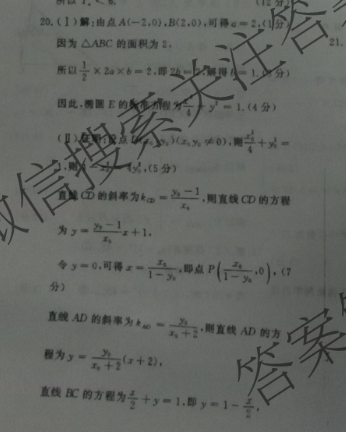 (12分)
20.(Ⅰ)解:由点A(-2,0),B(2,0),可得a=2,(1分)
21.
因为△ABC的面积为2,
所以1/2×2a×b=2,即2b=2,解得b=1,
因此,椭圆E的标准方程为x²/4+y²=1.(4分)
(Ⅱ)证明:设点D(x₀,y₀)(x₀y₀≠0),则x₀²/4+y₀²=
4y₀²,(5分)
直线CD的斜率为k_CD=(y₀-1)/x₀,则直线CD的方程
为y=(y₀-1)/x₀ x+1,
令y=0,可得x=x₀/(1-y₀),即点P(x₀/(1-y₀),0),(7
分)
直线AD的斜率为k_AD=y₀/(x₀+2),则直线AD的方
程为y=y₀/(x₀+2)(x+2),
直线BC的方程为x/2+y=1,即y=1-x/2,
微信搜索关注答案
答案